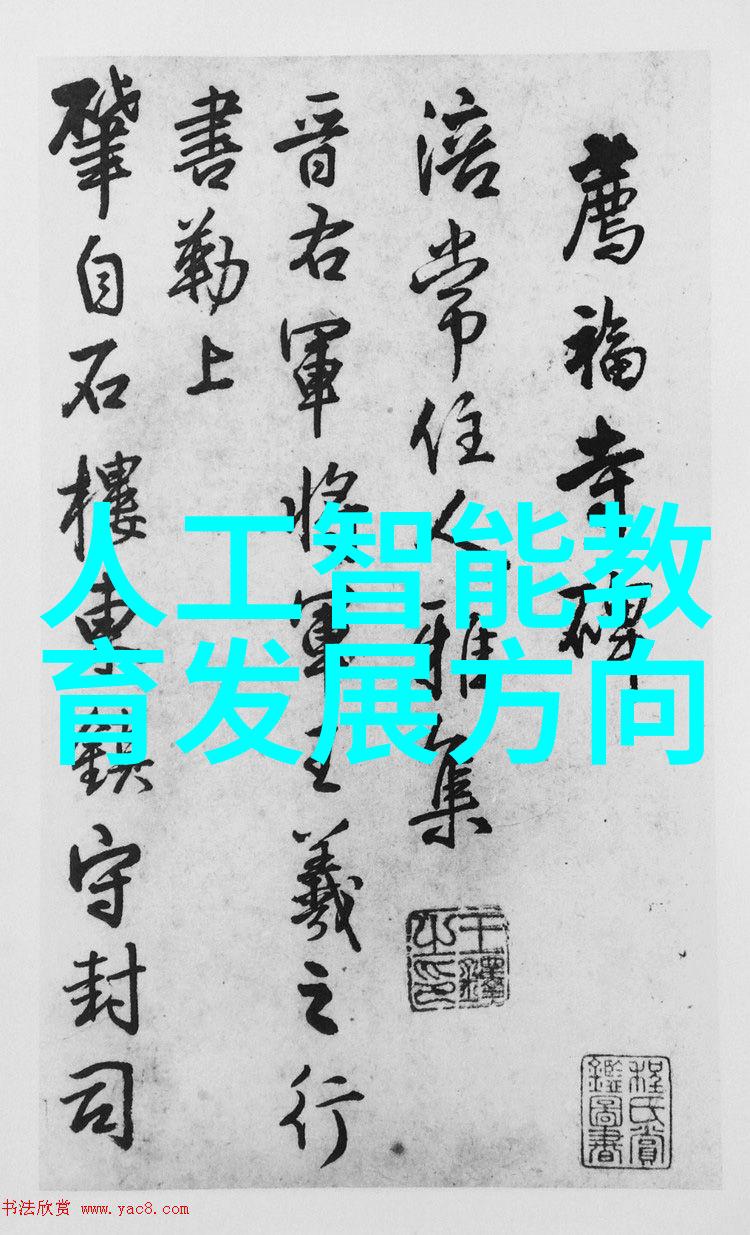 薦福寺碑
涪常住人雅集
晋右軍将軍王羲之行
書勒上
肇自石樓東鎮守封司
人工智能教
育发展方向
王鐸之印
程氏賞鑑圖書
书法欣赏 www.yac8.com